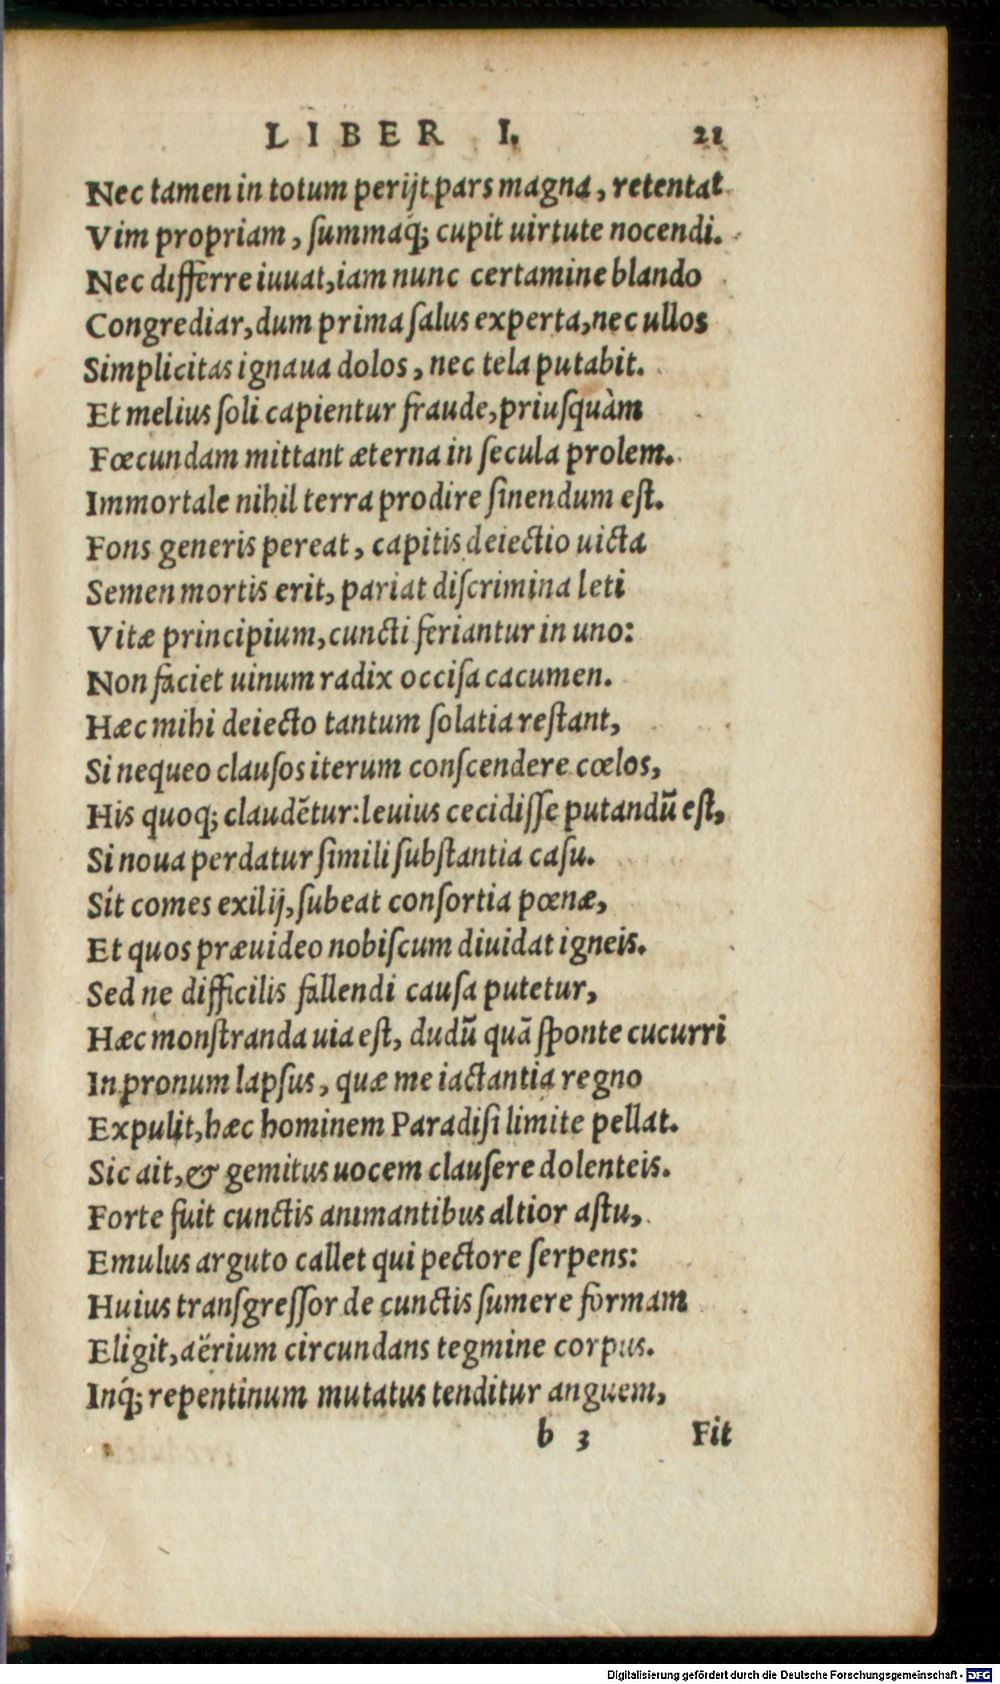 LIBER I. 21
Nec tamen in totum perijt pars magna, retentat
Vim propriam, summaq́; cupit uirtute nocendi.
Nec differre iuuat, iam nunc certamine blando
Congrediar, dum prima salus experta, nec ullos
Simplicitas ignaua dolos, nec tela putabit.
Et melius soli capientur fraude, priusquàm
Fœcundam mittant æterna in secula prolem.
Immortale nihil terra prodire sinendum est.
Fons generis pereat, capitis deiectio uicta
Semen mortis erit, pariat discrimina leti
Vitæ principium, cuncti feriantur in uno:
Non faciet uinum radix occisa cacumen.
Hæc mihi deiecto tantum solatia restant,
Si nequeo clausos iterum conscendere cœlos,
His quoq; claudẽtur: leuius cecidisse putandũ est,
Si noua perdatur simili substantia casu.
Sit comes exilij, subeat consortia pœnæ,
Et quos præuideo nobiscum diuidat igneis.
Sed ne difficilis fallendi causa putetur,
Hæc monstranda uia est, dudũ quã sponte cucurri
In pronum lapsus, quæ me iactantia regno
Expulit, hæc hominem Paradisi limite pellat.
Sic ait, & gemitus uocem clausere dolenteis.
Forte fuit cunctis animantibus altior astu,
Emulus arguto callet qui pectore serpens:
Huius transgressor de cunctis sumere formam
Eligit, aërium circundans tegmine corpus.
Inq́; repentinum mutatus tenditur anguem,
b 3 Fit
Digitalisierung gefördert durch die Deutsche Forschungsgemeinschaft - DFG